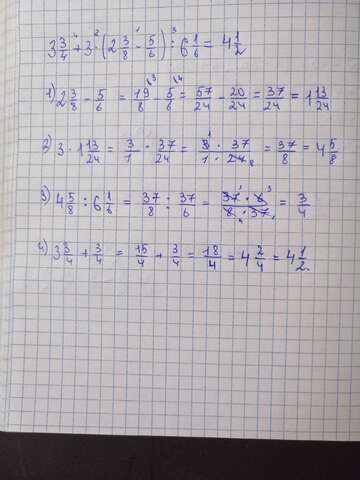 3 3/4 + 3 · (2 3/8 - 5/6) : 6 1/6 = 4 1/2
1) 2 3/8 - 5/6 = 19/8 - 5/6 = 57/24 - 20/24 = 37/24 = 1 13/24
2) 3 · 1 13/24 = 3/1 · 37/24 = 3 · 37 / 1 · 24 = 37/8 = 4 5/8
3) 4 5/8 : 6 1/6 = 37/8 : 37/6 = 37 · 6 / 8 · 37 = 3/4
4) 3 3/4 + 3/4 = 15/4 + 3/4 = 18/4 = 4 2/4 = 4 1/2